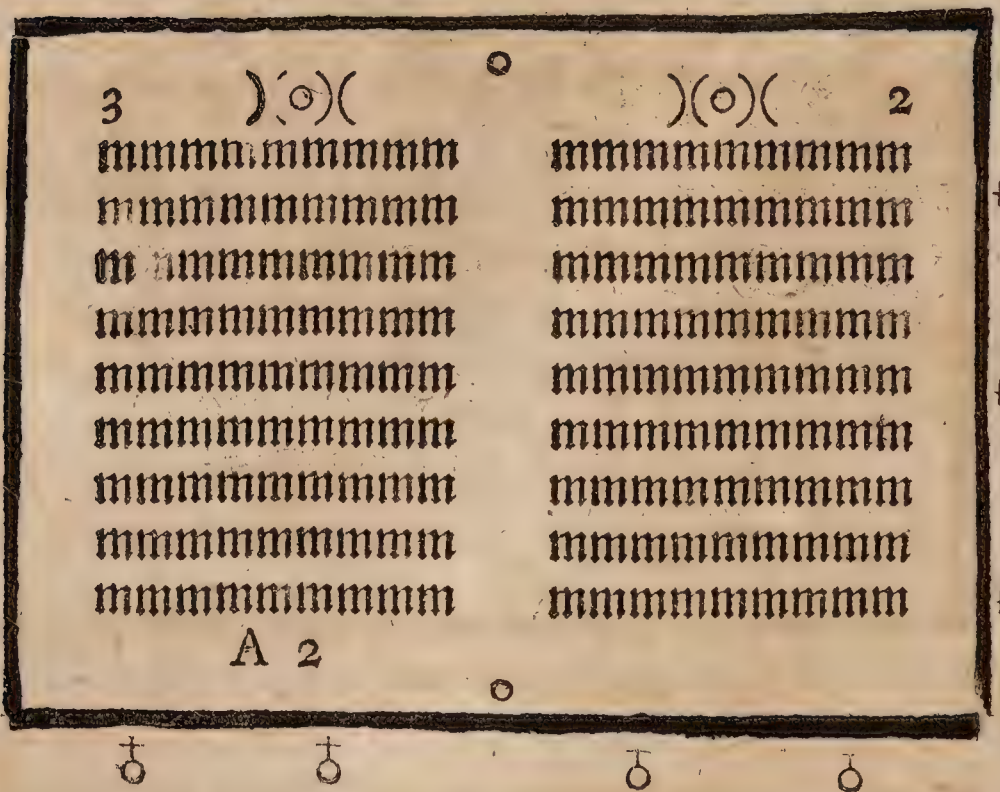 3 )(o)(
mmmmmmmmm
mmmmmmmmm
mmmmmmmmm
mmmmmmmmm
mmmmmmmmm
mmmmmmmmm
mmmmmmmmm
mmmmmmmmm
mmmmmmmmm
A 2
)(o)( 2
mmmmmmmmm
mmmmmmmmm
mmmmmmmmm
mmmmmmmmm
mmmmmmmmm
mmmmmmmmm
mmmmmmmmm
mmmmmmmmm
mmmmmmmmm